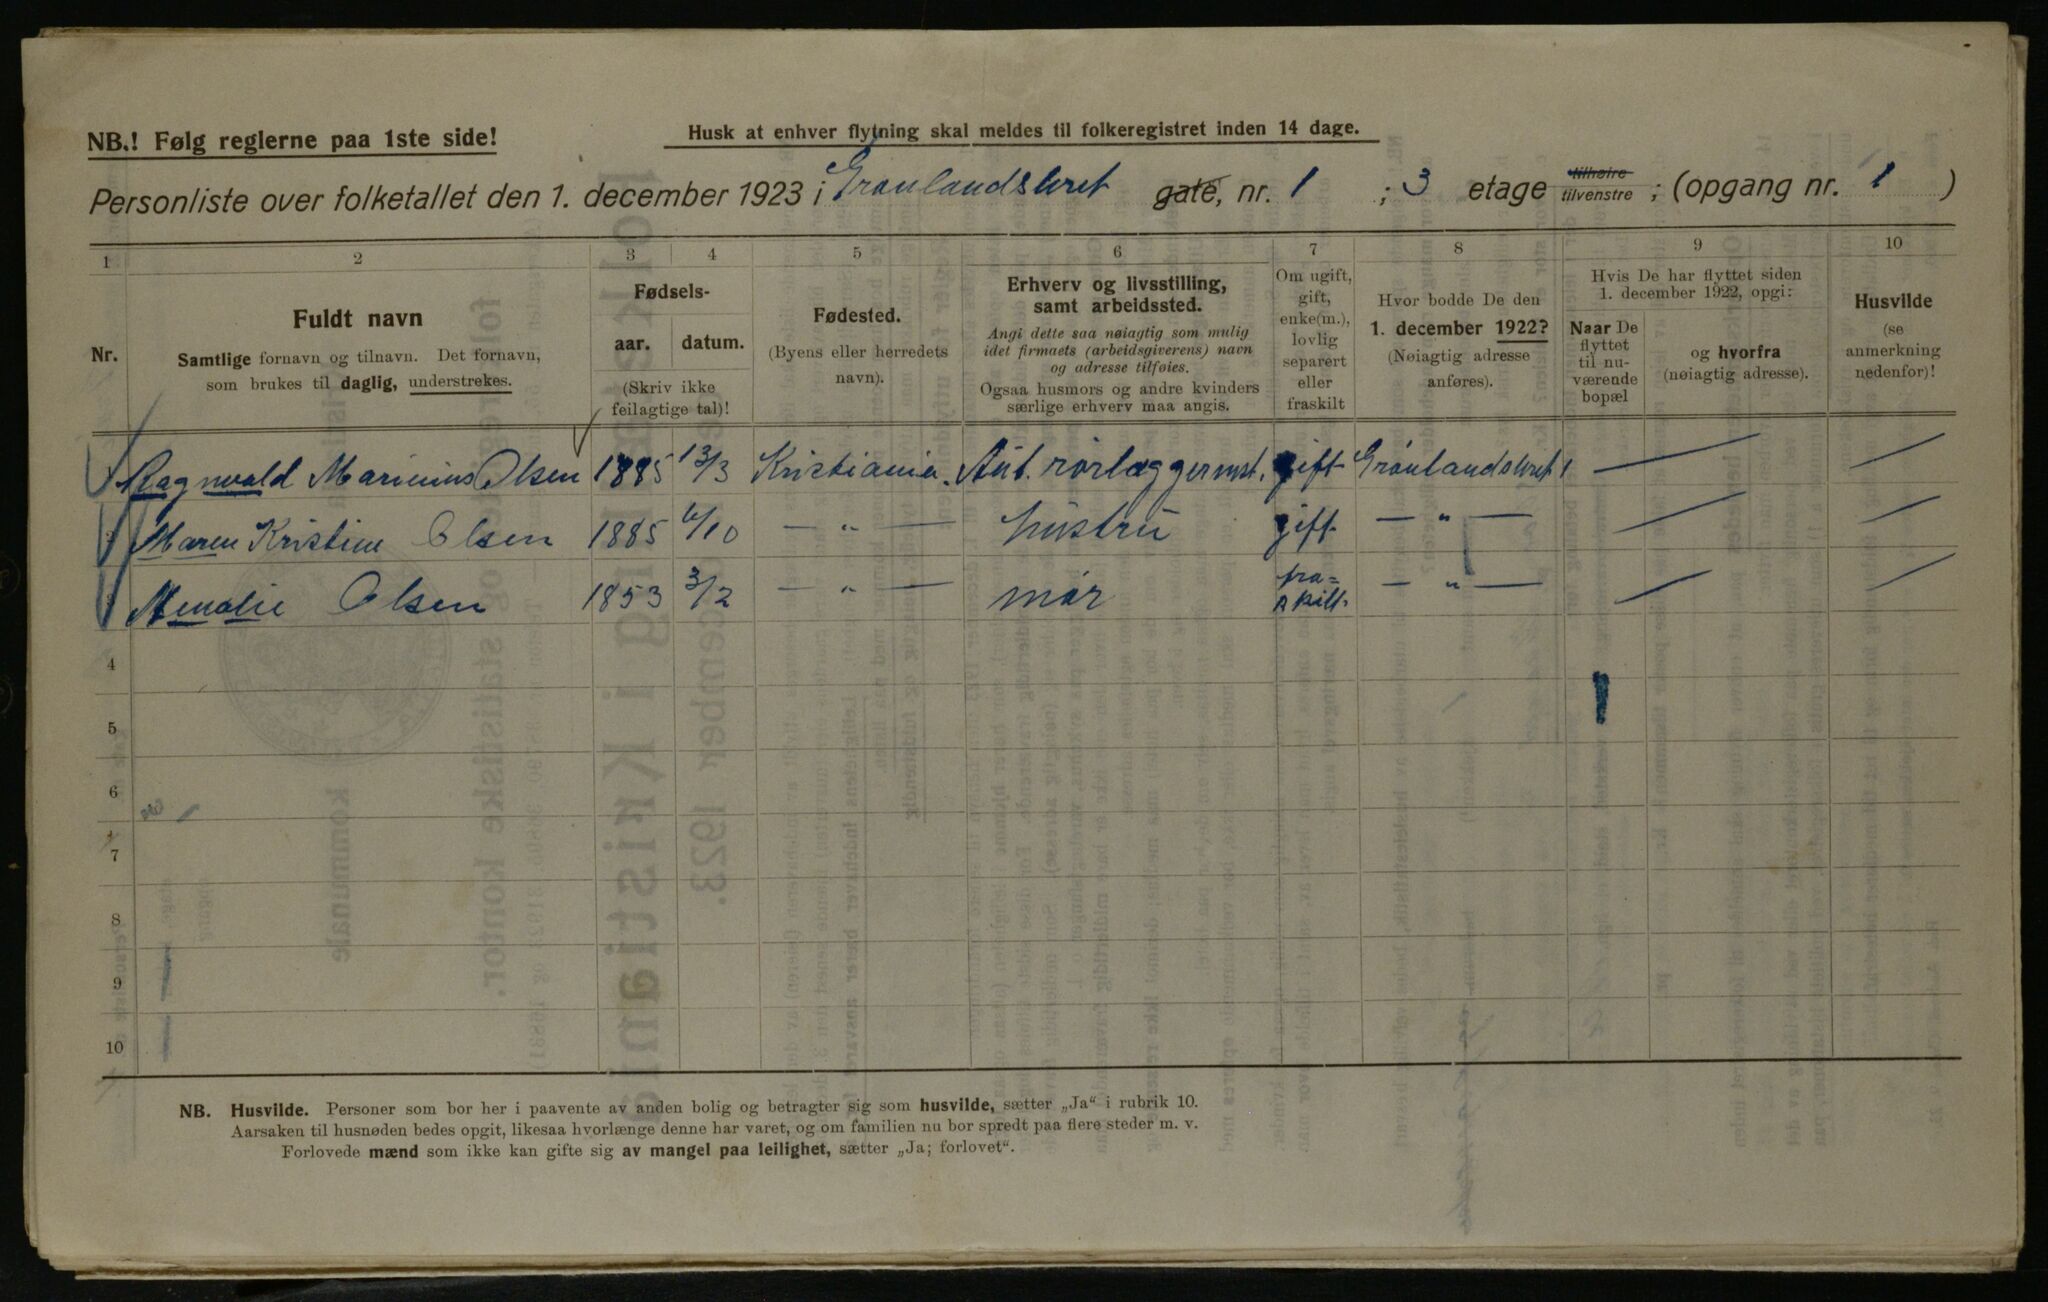 NB.! Følg reglerne paa 1ste side!
Husk at enhver flytning skal meldes til folkeregistret inden 14 dage.
Personliste over folketallet den 1. december 1923 i Grønlandsleret gate, nr. 1 ; 3 etage tilhøire tilvenstre ; (opgang nr. 1 )
1 2 3 4 5 6 7 8 9 10
Nr.
Fuldt navn
Samtlige fornavn og tilnavn. Det fornavn,
som brukes til daglig, understrekes.
Fødsels-
aar. datum.
(Skriv ikke
feilagtige tal)!
Fødested.
(Byens eller herredets
navn).
Erhverv og livsstilling,
samt arbeidssted.
Angi dette saa nøiagtig som mulig
idet firmaets (arbeidsgiverens) navn
og adresse tilføies.
Ogsaa husmors og andre kvinders
særlige erhverv maa angis.
Om ugift,
gift,
enke(m.),
lovlig
separert
eller
fraskilt
Hvor bodde De den
1. december 1922?
(Nøiagtig adresse
anføres).
Hvis De har flyttet siden
1. december 1922, opgi:
Naar De
flyttet
til nu-
værende
bopæl
og hvorfra
(nøiagtig adresse).
Husvilde
(se
anmerkning
nedenfor)!
Ragnvald Marinius Olsen 1885 13/3 Kristiania. Aut. rørlæggermst. gift Grønlandsleret 1 — —
2 Maren Kristine Olsen 1885 6/10 — „ — hustru gift — „ — — —
3 Amalie Olsen 1853 3/2 — „ — mor fra=skilt — „ — — —
4
5
6
7
8
9
10
NB. Husvilde. Personer som bor her i paavente av anden bolig og betragter sig som husvilde, sætter „Ja“ i rubrik 10.
Aarsaken til husnøden bedes opgit, likesaa hvorlænge denne har varet, og om familien nu bor spredt paa flere steder m. v.
Forlovede mænd som ikke kan gifte sig av mangel paa leilighet, sætter „Ja; forlovet“.